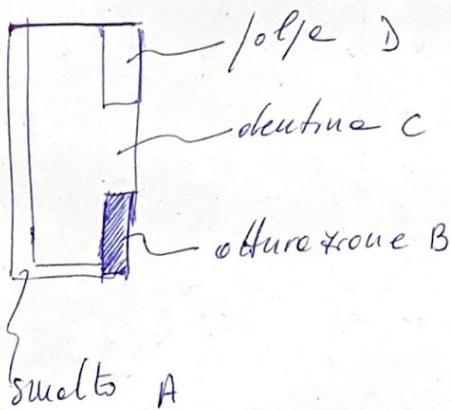 polpa D
dentina C
otturazione B
smalto A